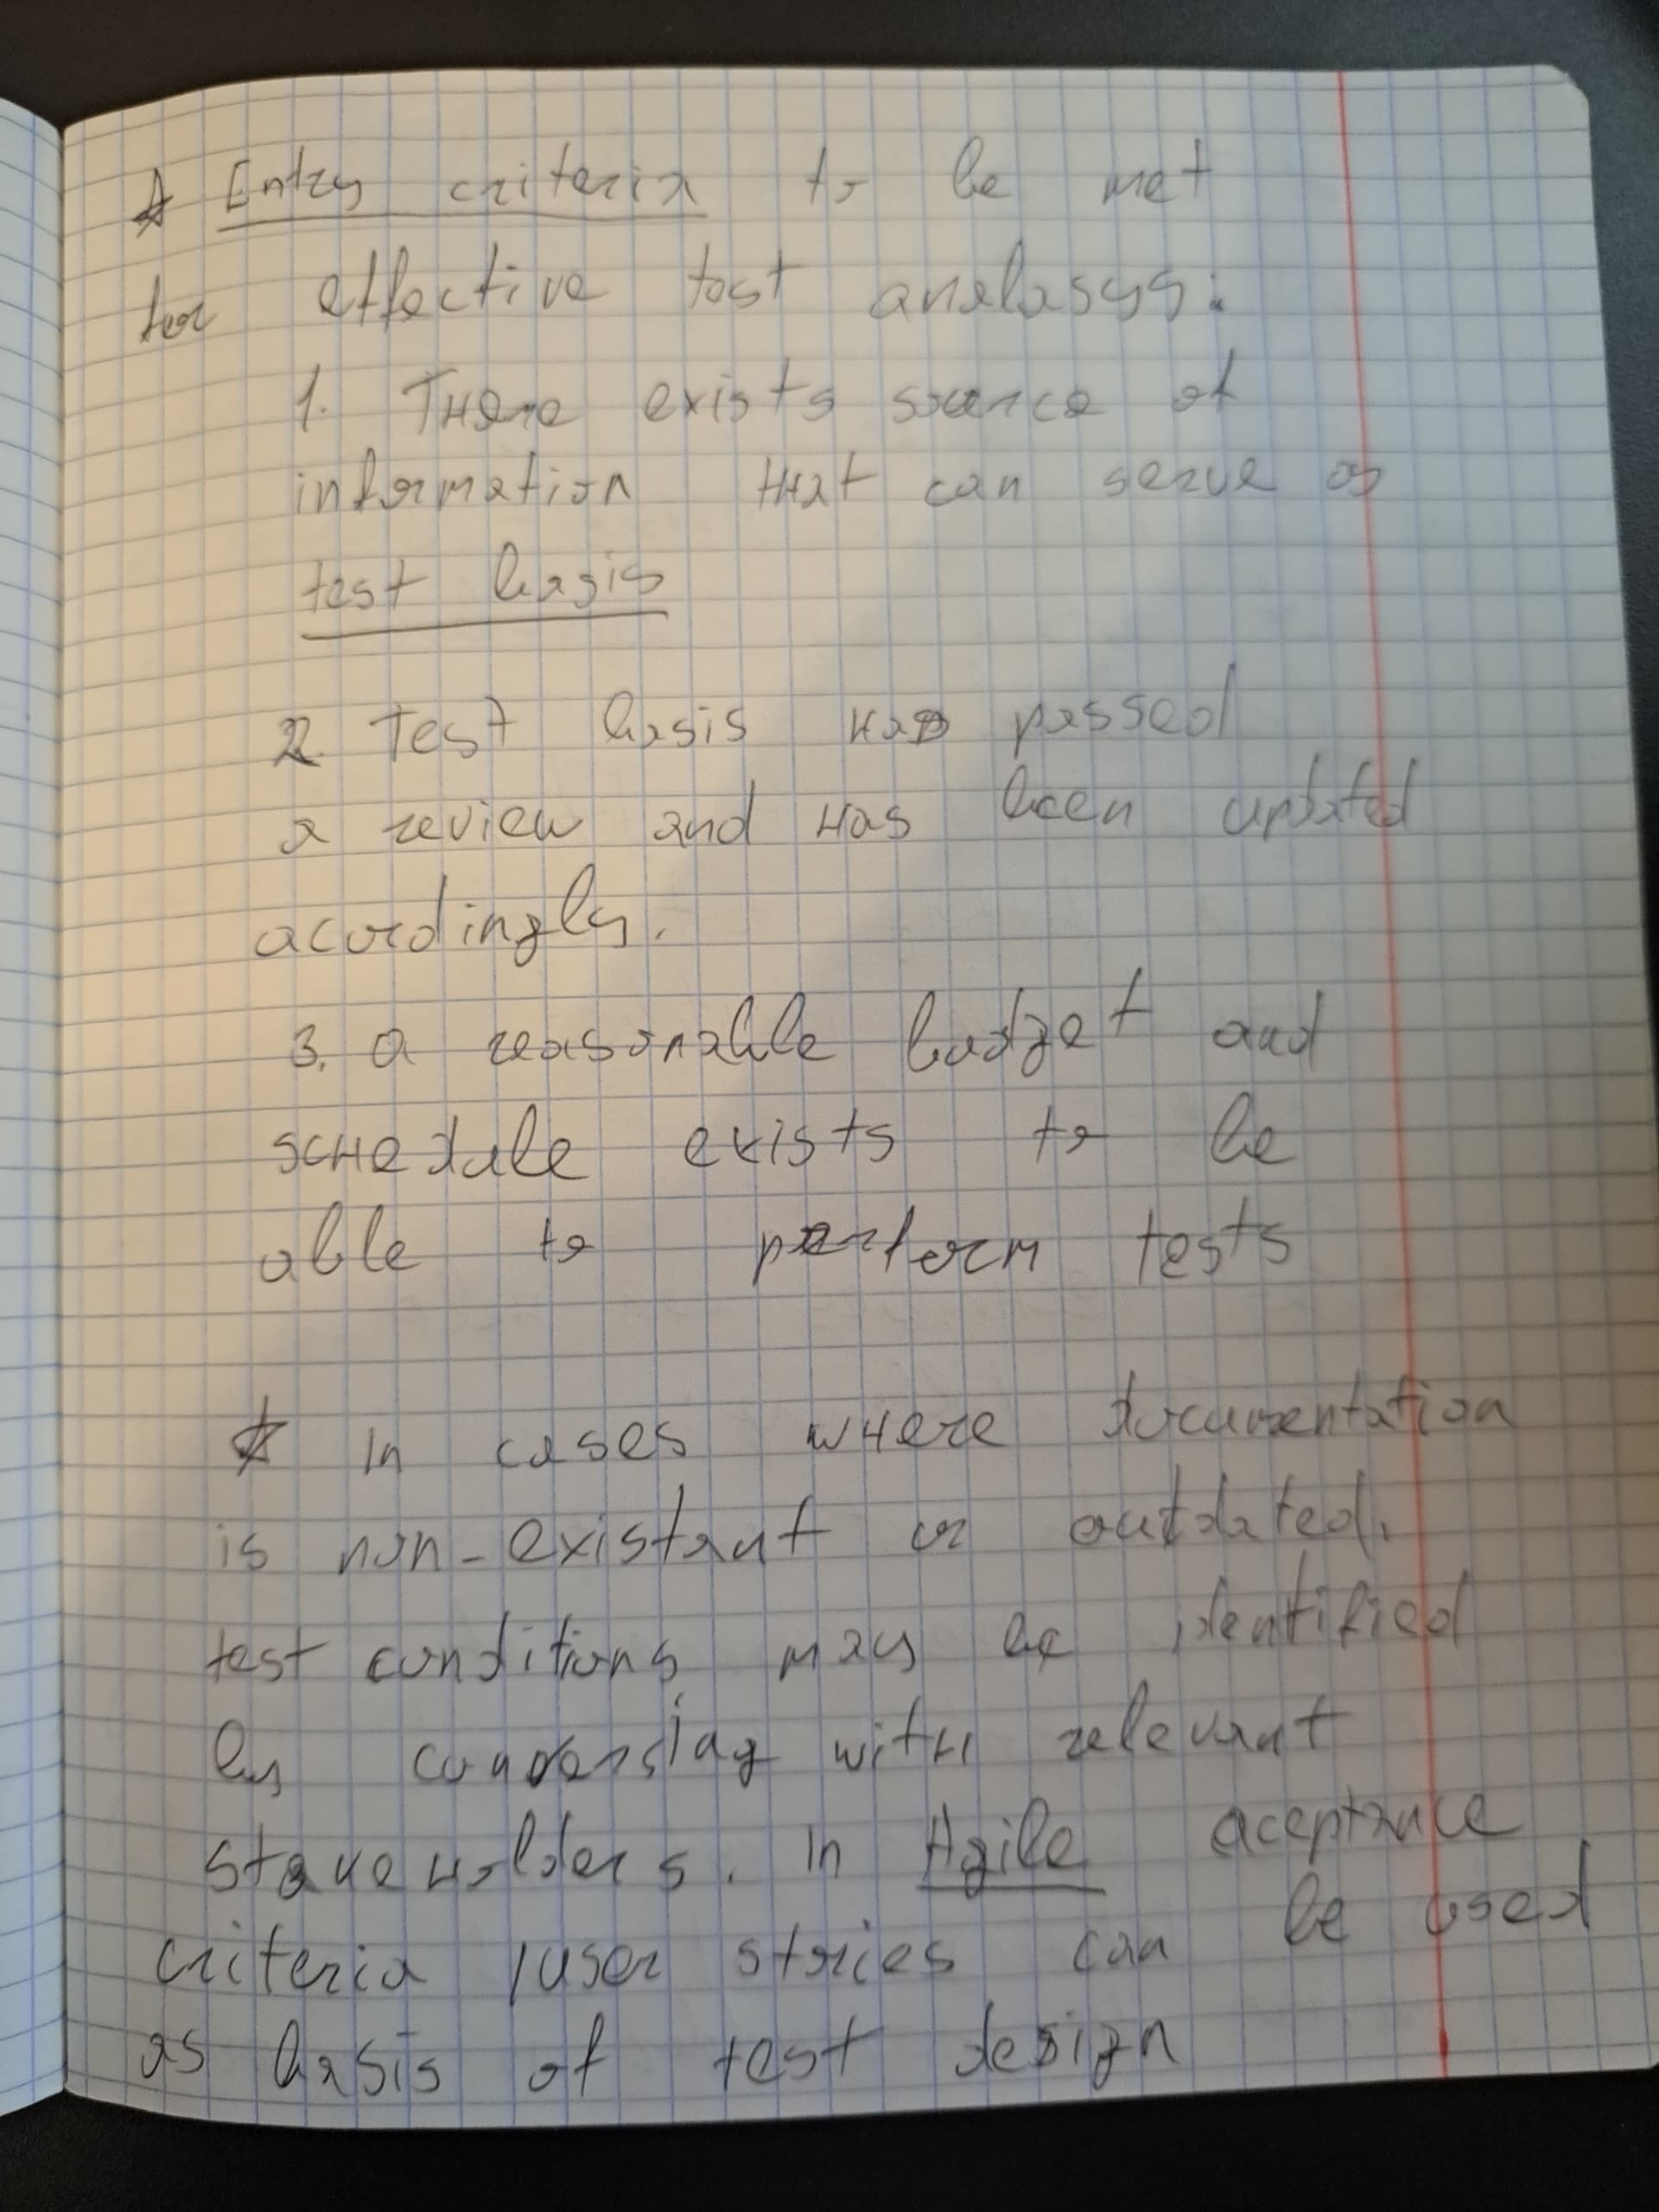 ☆ Entry criteria to be met
for effective test analasys:
1. There exists source of
information that can serve as
test basis
2. Test basis has passed
a review and has been updated
acordingly.
3. a reasonable budget and
schedule exists to be
able to perform tests
☆ In cases where documentation
is non-existant or outdated,
test conditions may be identified
by conversing with relevant
stakeholders. In Agile aceptance
criteria / user stories can be used
as basis of test design